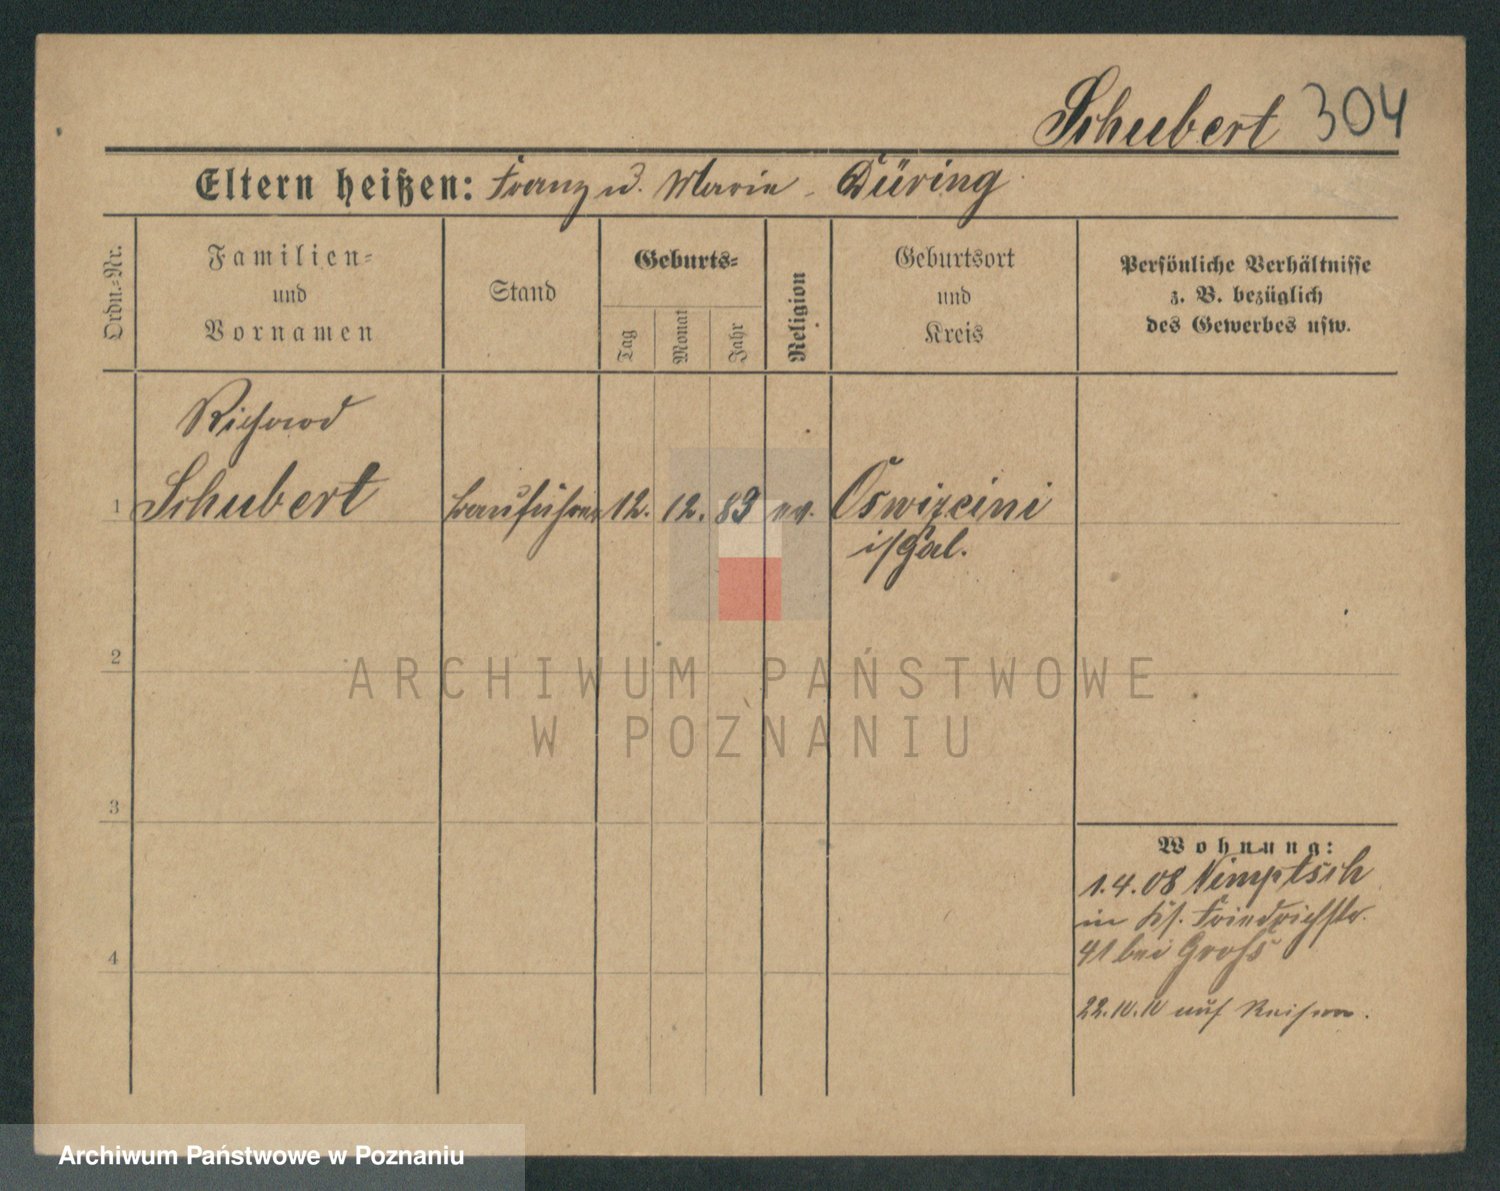 Schubert 304
Eltern heißen: Franz u. Marie Düring
Ordn.-Nr.
Familien-
und
Vornamen
Stand
Geburts-
Tag
Monat
Jahr
Religion
Geburtsort
und
Kreis
Persönliche Verhältnisse
z. B. bezüglich
des Gewerbes usw.
Richard
1 Schubert Bauführer 12. 12. 83 ev.
i/Gal.
2
3
4
Wohnung:
1.4.08 Nimptsch
in Friedrichstr.
41 bei Groß
auf Reisen.
ARCHIWUM PAŃSTWOWE
W POZNANIU
Archiwum Państwowe w Poznaniu